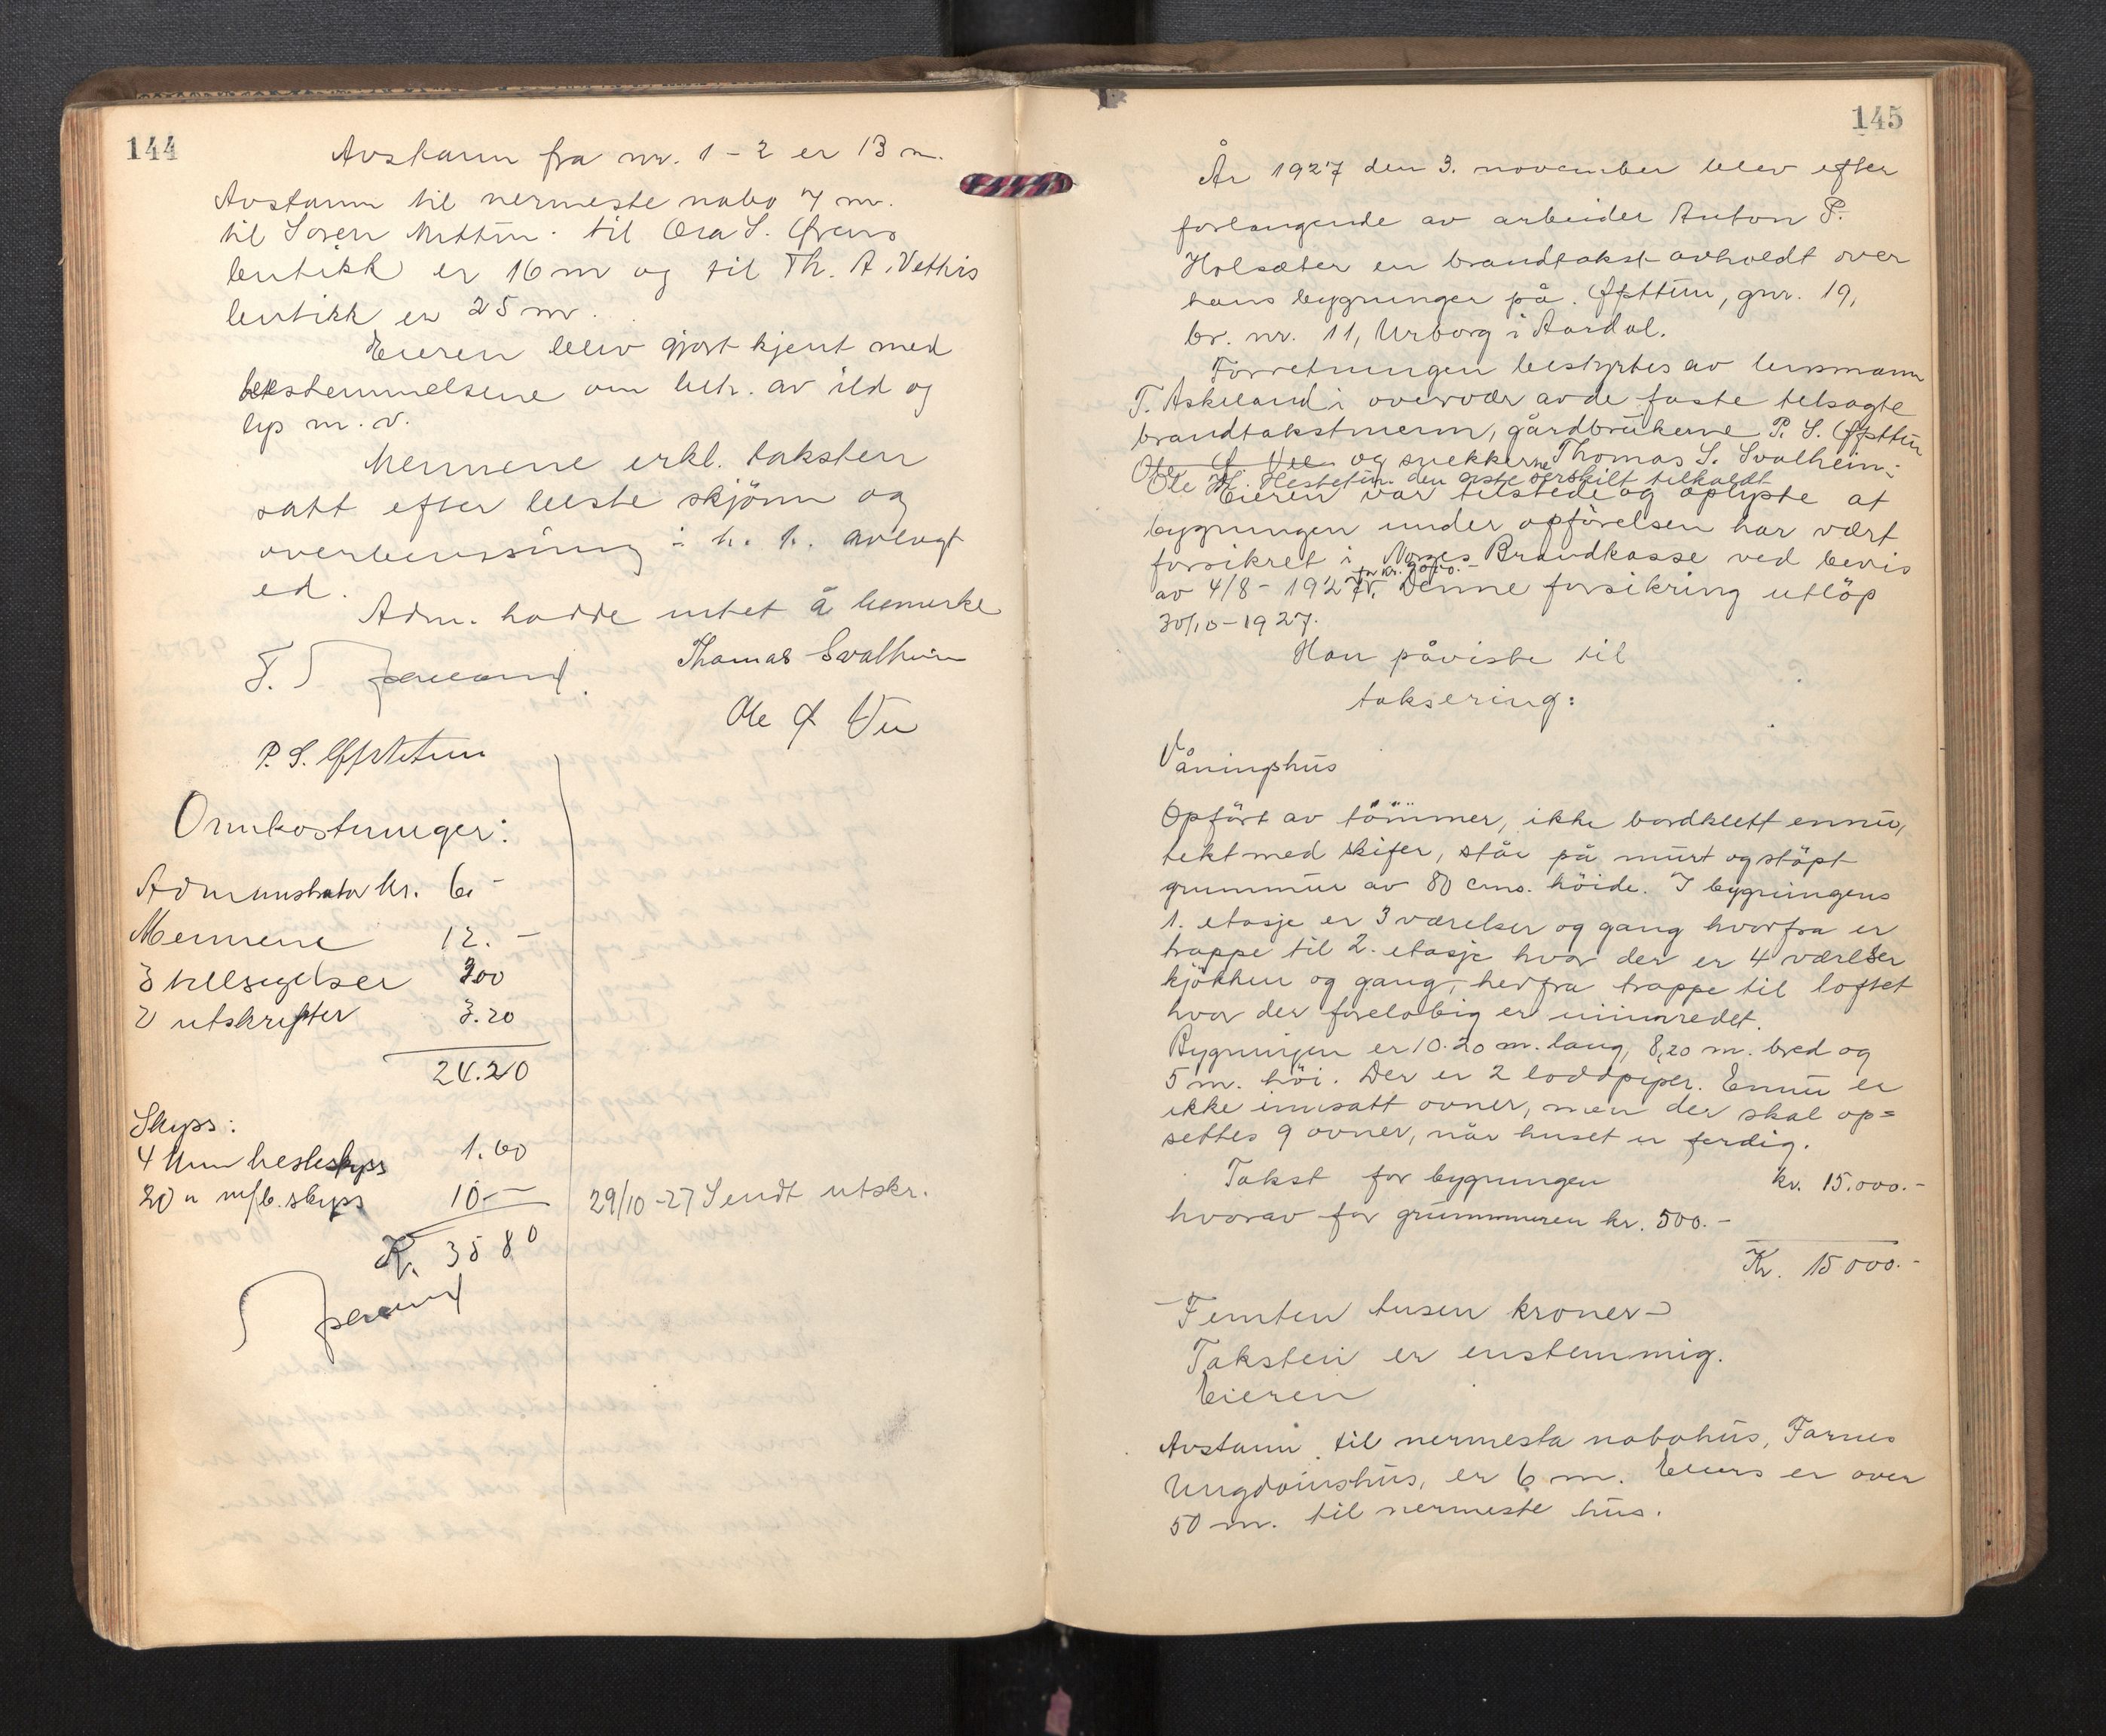 144
Avstann fra nr. 1 - 2 er 13 m.
Avstann til nermeste nabo 7 m.
til Søren Mettun. til Ola S. Øvens
butikk er 16 m og til Th. A. Vettis
butikk er 25 m.
Eieren blev gjort kjent med
bestemmelsene om beh. av ild og
lys m. v.
Mennene erkl. taksten
satt efter beste skjönn og
overbevisning i h. t. avlagt
ed.
Adm. hadde intet å bemerke
Thomas Svalheim
Ole Ø Vee
P. S. Offstetun
Omkostninger:
Administrator kr. 6.-
Mennene 12.-
3 tilsigelser 300
2 utskrifter 3.20
24.20
Skyss:
4 km hesteskyss 1.60
20 " m/b. skyss 10.-
Kr. 35 80
29/10-27 Sendt utskr.
145
År 1927 den 3. november blev efter
forlangende av arbeider Anton P.
Holsæter en brandtakst avholdt over
hans bygninger på Ofttun, gnr. 19,
br. nr. 11, Urborg i Aardal.
Forretningen bestyrtes av lensmann
T. Askeland i overvær av de faste tilsagte
brandtakstmenn, gårdbrukerne P. S. Offttun
Ole Ø Vee og snekkerne Thomas S. Svalheim
Ole H. Hestetun. den siste serskilt tilkaldt
Eieren var tilstede og oplyste at
bygningen under opförelsen har vært
forsikret i Norges Brandkasse ved bevis
av 4/8 - 1927. Denne forsikring utlöp
30/10-1927.
Han påviste til
taksering:
Våningshus
Opfört av tömmer, ikke bordklett ennu,
tekt med skifer, står på murt og stöpt
grunnmur av 80 cms. höide. I bygningens
1. etasje er 3 værelser og gang hvorfra er
trappe til 2. etasje hvor der er 4 værelser
kjökken og gang, herfra trappe til loftet
hvor der foreløbig er uinnredet.
Bygningen er 10.20 m. lang, 8,20 m. bred og
5 m. höi. Der er 2 loddpiper. Ennu er
ikke innsatt ovner, men der skal op=
settes 9 ovner, når huset er ferdig.
Takst for bygningen kr. 15.000.-
hvorav for grunnmuren kr. 500.-
Kr. 15 000.-
- Femten tusen kroner -
Taksten er enstemmig.
Eieren
Avstann til nermeste nabohus, Farnes
Ungdomshus, er 6 m. Ellers er over
50 m. til nermeste hus.